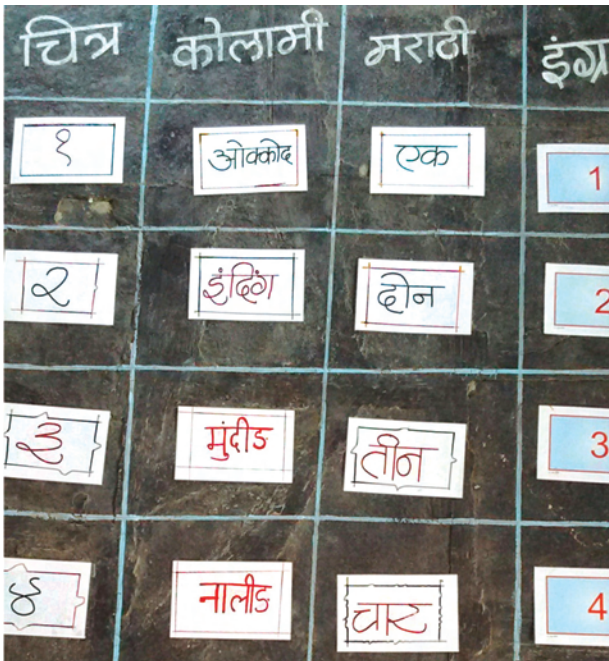 चित्र कोलामी मराठी इंग्र
१ ओक्कोद एक 1
२ इंदिंग दोन 2
३ मुंदीङ तीन 3
४ नालीङ चार 4